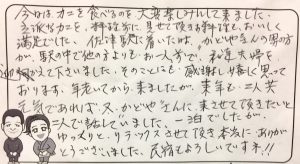 今回はカニを食べるのを大変楽しみにして来ました。
立派なカニを、料理前に見せて頂き料理もおいしく
満足でした。佐津駅に着いた時、かどやさんの男の方
が、駅の中で他のよりもお一人前で、私達夫婦を
迎えて下さいました。そのことにも感謝し嬉しく思って
おります。年老いて来ましたが、来年も二人共
元気であれば、又、かどやさんに来させて頂きたいと
二人で話していました。一泊でしたが、
ゆっくりと、リラックスさせて頂き本当にありが
とうございました。民宿もよろしいですネ!!